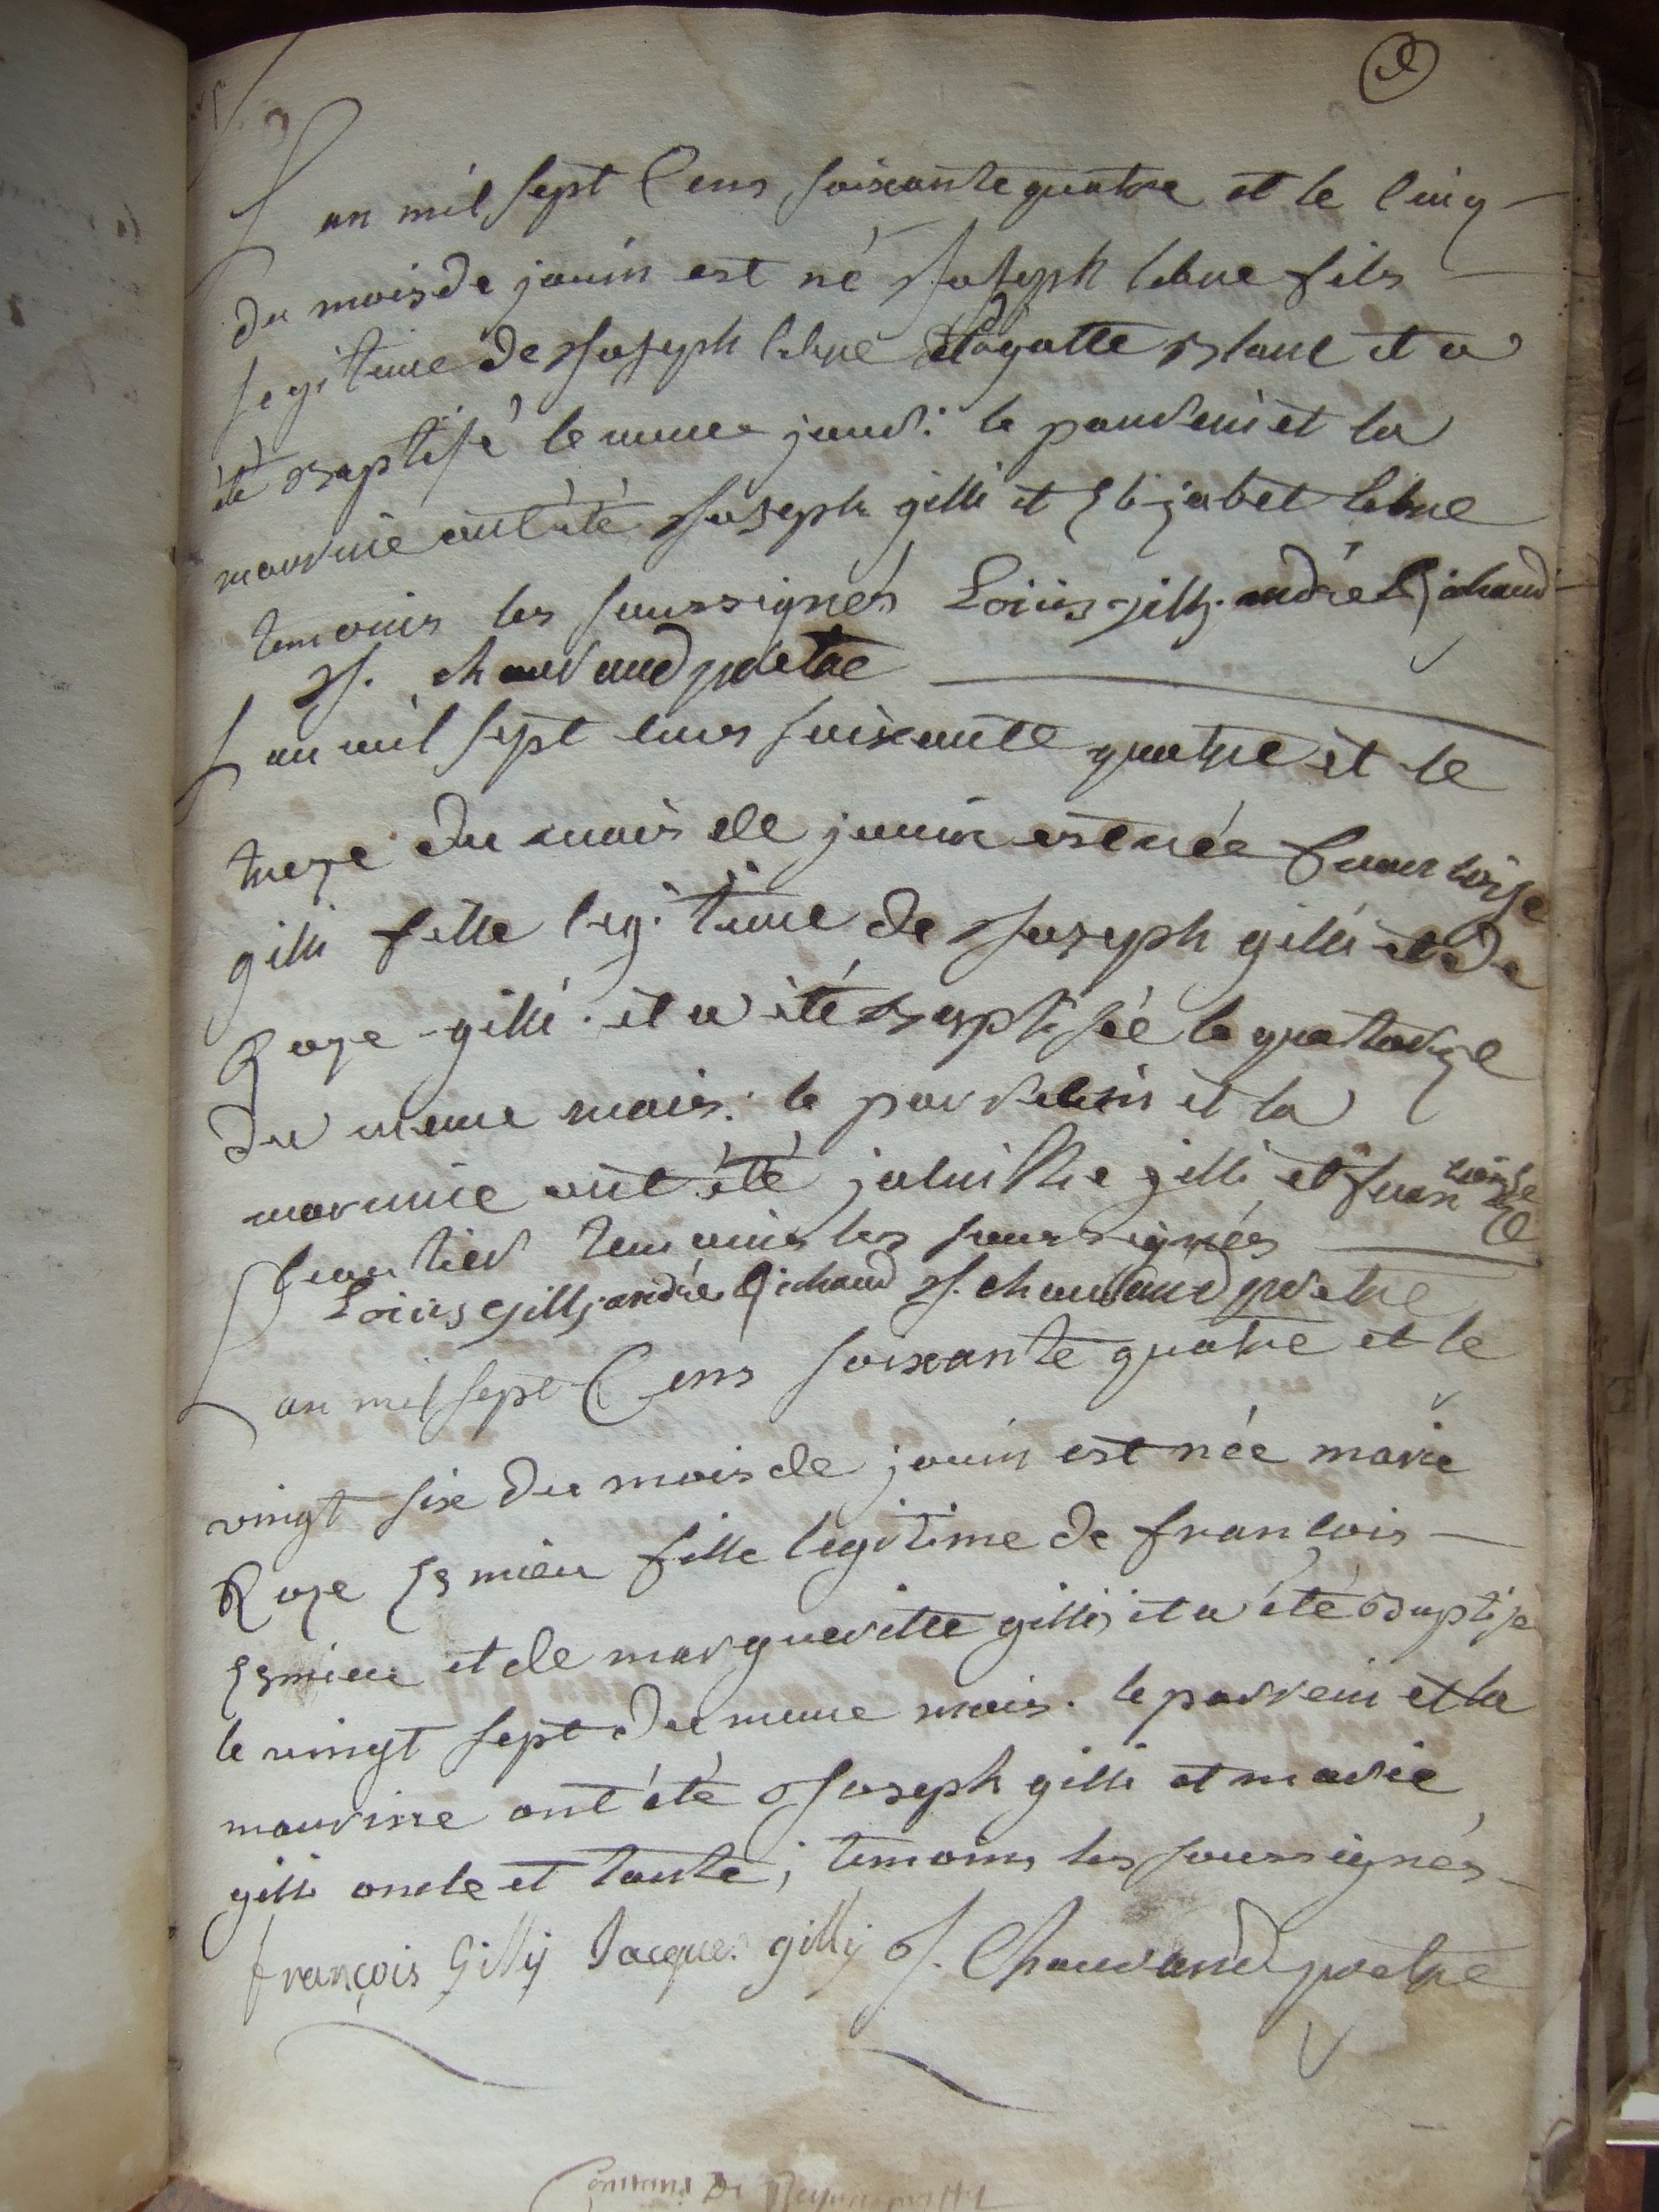 L'an mil sept Cens soixante quatre et le Cinq
du mois de jouin est né Joseph lebre fils
legitime de Joseph lebre et agatte Blanc et a
été Baptisé le meme jour: le parrein et la
marrine ont été Joseph gilli et Elizabet lebre
temoins les soussignés Loüis gilly andré Richaud
J. chauvand pretre
L'an mil sept cens soixante quatre et le
treze du mois de jouin est née francoise
gilli fille legitime de Joseph gilli et de
Roze gilli. et a été Baptisée le quatorze
du meme mois: le parrein et la
marrine ont été gilli et francoise
temoins les soussignés
Loüis Gilly andré Richaud J. chauvand pretre
L'an mil sept Cens soixante quatre et le
vingt six du mois de jouin est née marie
Roze Esmieu fille legitime de francois
Esmieu et de margueritte gilli; et a été Baptisé
le vingt sept du meme mois. le parrein et la
marrine ont été Joseph gilli et marie
gilli oncle et tante; temoins les soussignés
françois Gilly Jacques gilly J. Chauvand pretre